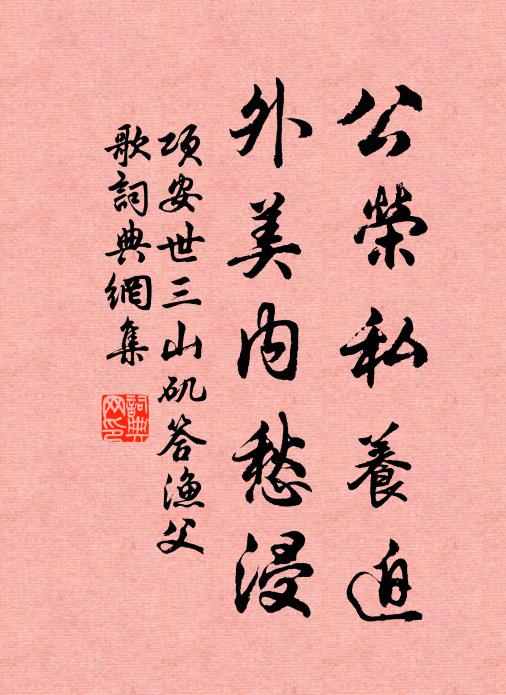 公榮私養迫
外美内愁浸
項安世三山矶答漁父
歌詞典網集
詞典网印